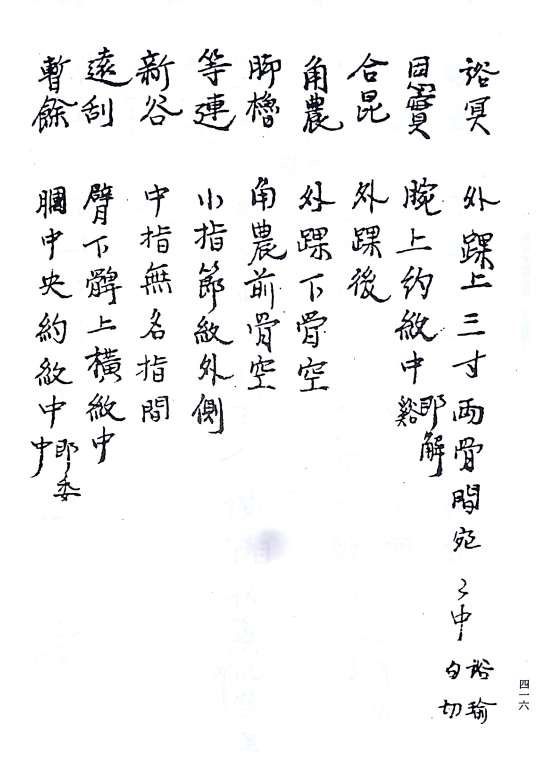 谽冥　外踝上三寸両骨間宛々中　谽瑜白切
固竇　腕上約紋中　即解谿
合昆　外踝後
角農　外踝下骨空
脚櫓　角農前骨空
等連　小指節紋外側
新谷　中指無名指間
遠刮　臂下髀上横紋中
暫餘　膕中央約紋中　即委中
四一六